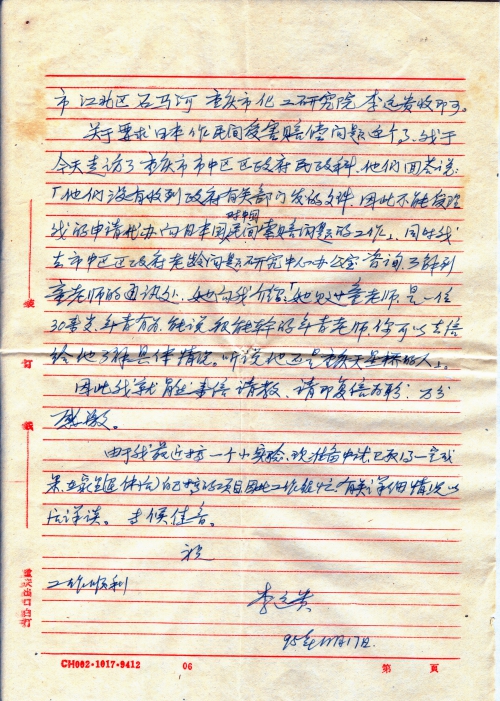 市江北区石马河重庆市化工研究院李远贵收即可。
关于要求日本作民间受害赔偿问题这个事，我于
今天走访了重庆市市中区区政府民政科，他们回答说：
「他们没有收到政府有关部门发的文件，因此不能受理
对中国
我的申请代办向日本国民间索赔问题的工作」，同时我
去市中区区政府老龄问题研究中心办公室咨询，了解到
童老师的通讯处，她向我介绍：「她说童老师是一位
30来岁，年青有为，能说能干的年青老师你可以去信
给他了解具体情况。听说他还是重庆人」。
因此我就冒昧来信请教，请即复信为盼，万分
感激。
由于我最近搞一个小实验，次准备中试已取得一定成
果，因此工作较忙，有关详细情况以
后详谈。去候佳音。
祝
工作顺利
李远贵
95年11月17日
装
订
线
重庆出口白打
CH002·1017·9412
06
第 頁